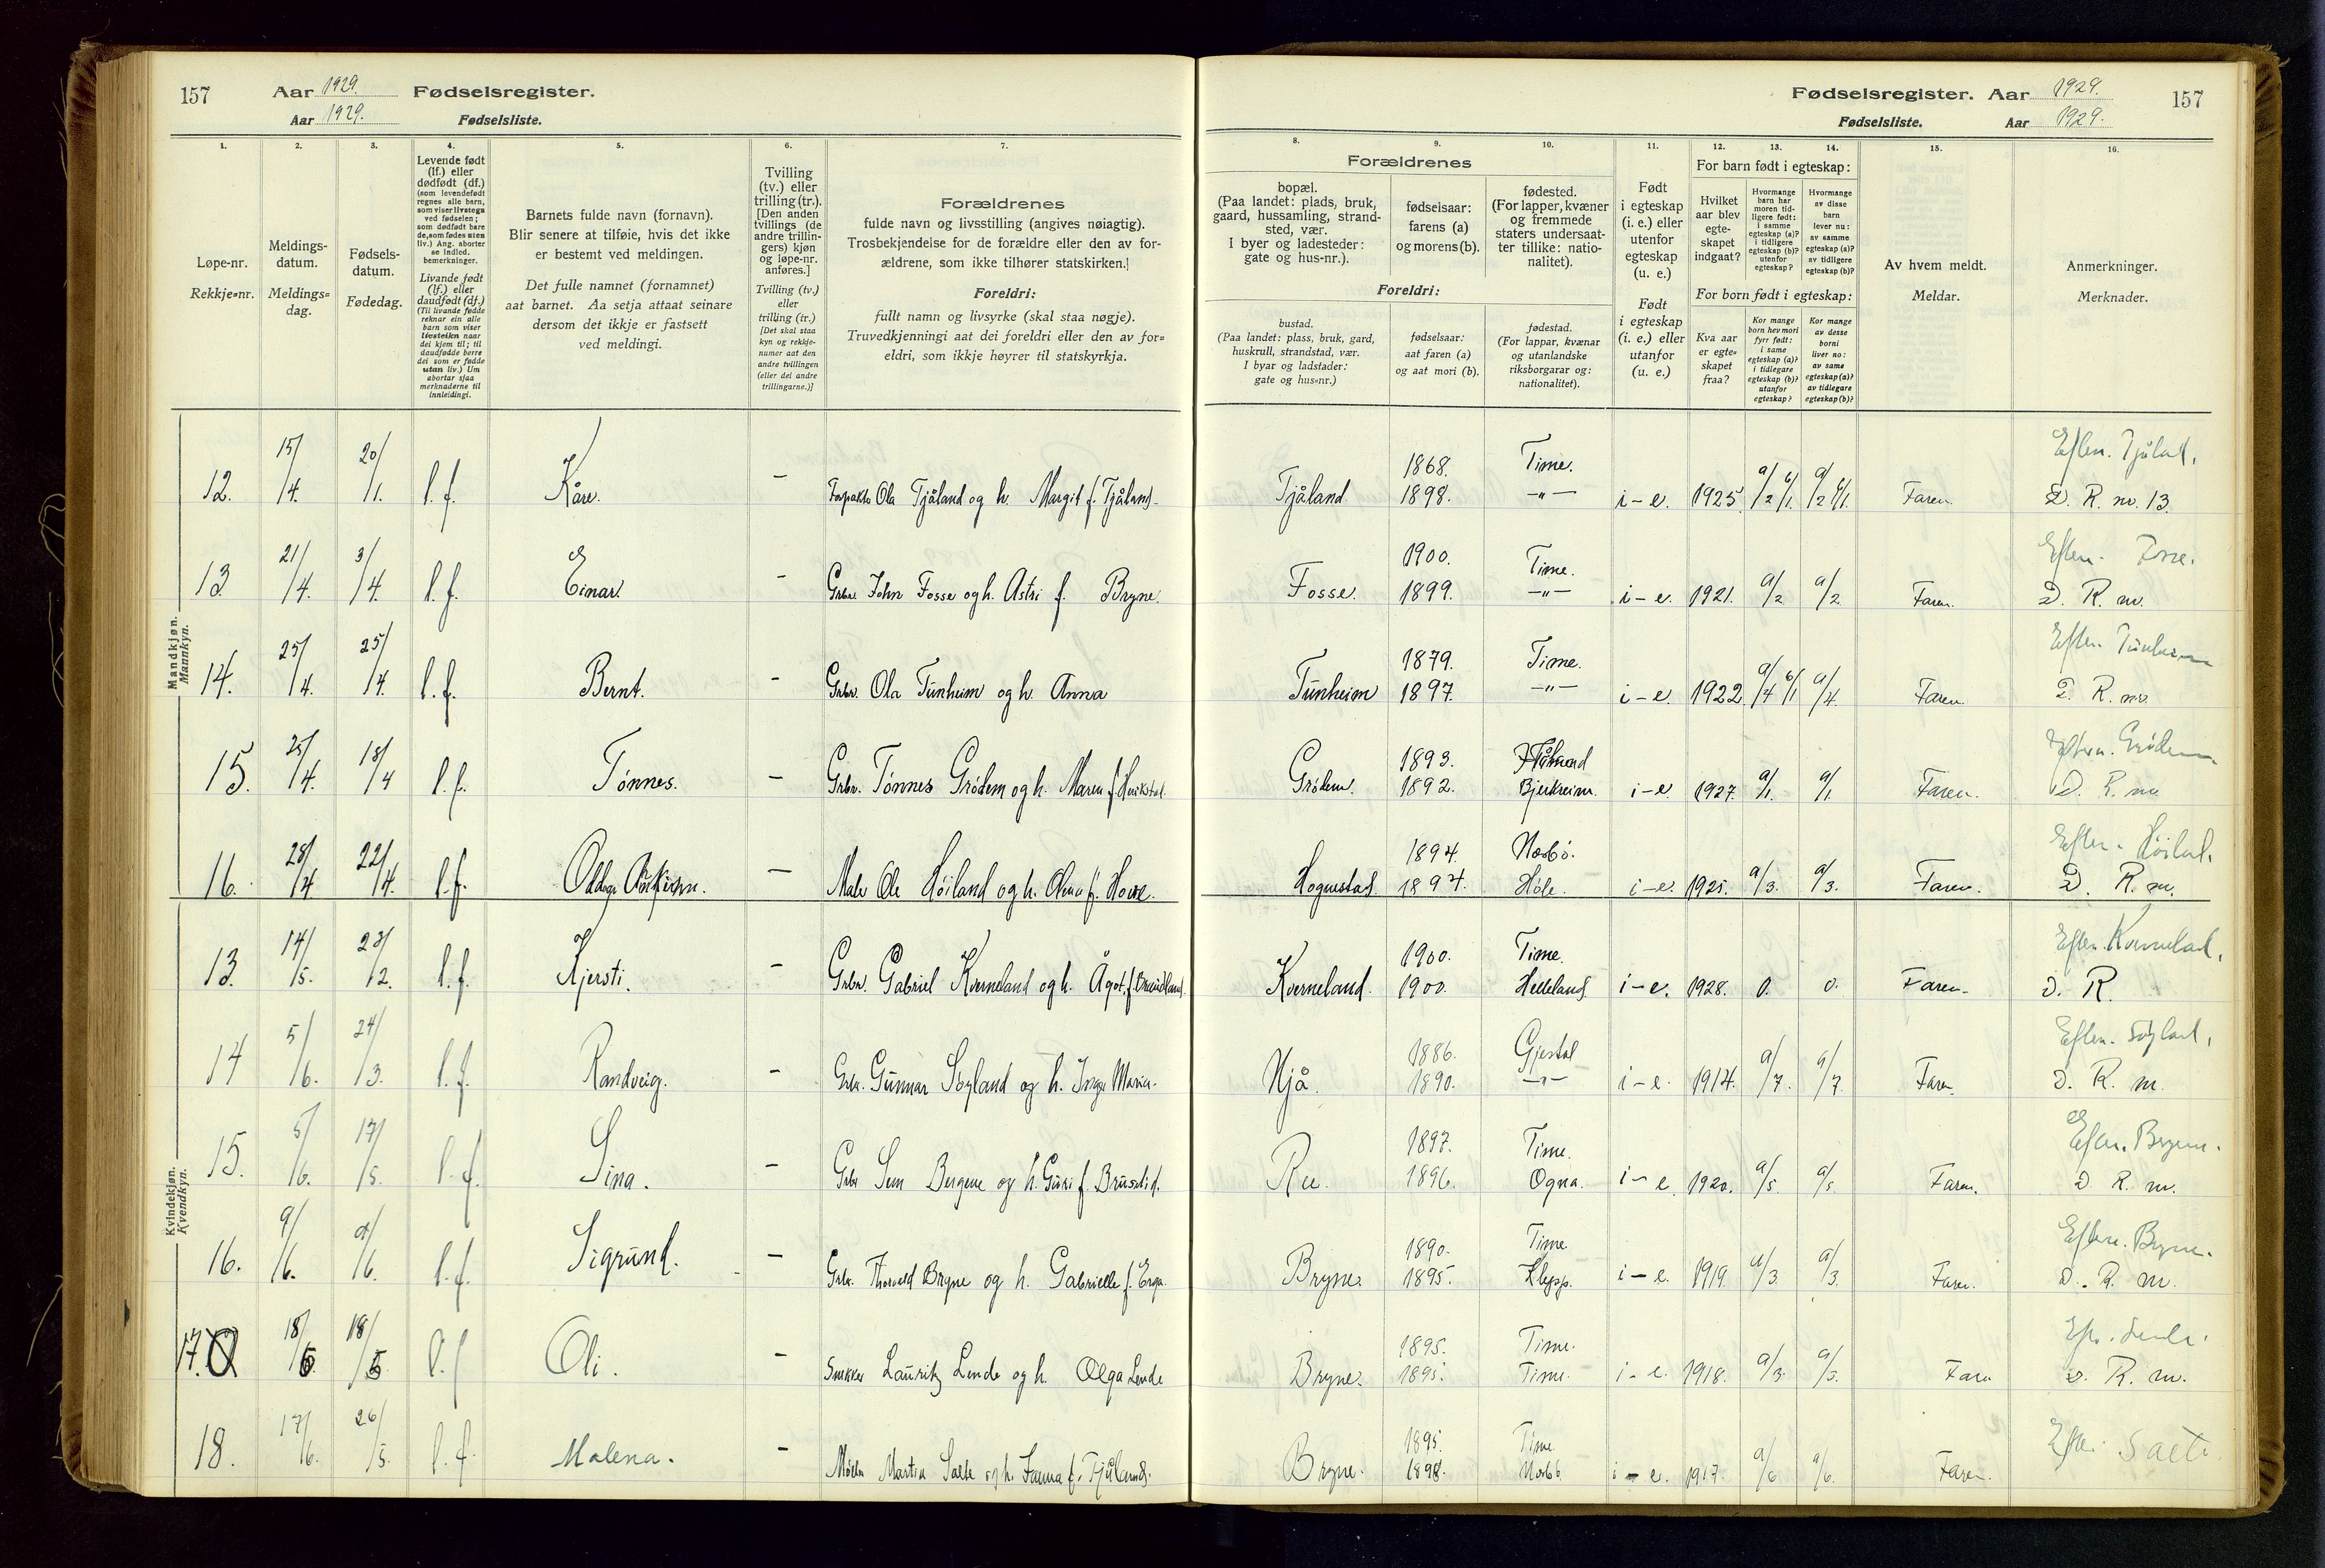 157 Aar 1929. Fødselsregister.
Aar 1929. Fødselsliste.
Fødselsregister. Aar 1929. 157
Fødselsliste. Aar 1929.
1. 2. 3. 4. 5. 6. 7.
Løpe-nr.
Rekkje=nr.
Meldings-
datum.
Meldings=
dag.
Fødsels-
datum.
Fødedag.
Levende født
(lf.) eller
dødfødt (df.)
(som levendefødt
regnes alle barn,
som viser livstegn
ved fødselen;
som dødfødt bare
de, som fødes uten
liv.) Ang. aborter
se indled.
bemerkninger.
Livande født
(lf.) eller
daudfødt (df.)
(Til livande fødde
reknar ein alle
barn som viser
livsteikn naar
dei kjem til; til
daudfødde berre
dei som er fødde
utan liv.) Um
abortar sjaa
merknaderne til
innleidingi.
Barnets fulde navn (fornavn).
Blir senere at tilføie, hvis det ikke
er bestemt ved meldingen.
Det fulle namnet (fornamnet)
aat barnet. Aa setja attaat seinare
dersom det ikkje er fastsett
ved meldingi.
Tvilling
(tv.) eller
trilling (tr.).
[Den anden
tvillings (de
andre trillin-
gers) kjøn
og løpe-nr.
anføres.]
Tvilling (tv.)
eller
trilling (tr.)
[Det skal staa
kyn og rekkje-
numer aat den
andre tvillingen
(eller dei andre
trillingarne.)]
Forældrenes
fulde navn og livsstilling (angives nøiagtig).
Trosbekjendelse for de forældre eller den av for-
ældrene, som ikke tilhører statskirken.
Foreldri:
fullt namn og livsyrke (skal staa nøgje).
Truvedkjenningi aat dei foreldri eller den av for=
eldri, som ikkje høyrer til statskyrkja.
8. 9. 10. 11. 12. 13. 14. 15. 16.
Forældrenes
bopæl.
(Paa landet: plads, bruk,
gaard, hussamling, strand-
sted, vær.
I byer og ladesteder:
gate og hus-nr.).
fødselsaar:
farens (a)
og morens (b).
fødested.
(For lapper, kvæner
og fremmede
staters undersaat-
ter tillike: natio-
nalitet).
Foreldri:
bustad.
(Paa landet: plass, bruk, gard,
huskrull, strandstad, vær.
I byar og ladstader:
gate og hus=nr.)
fødselsaar:
aat faren (a)
og aat mori (b).
fødestad.
(For lappar, kvænar
og utanlandske
riksborgarar og:
nationalitet).
Født
i egteskap
(i. e.) eller
utenfor
egteskap
(u. e.)
Født
i egteskap
(i. e.) eller
utanfor
(u. e.)
For barn født i egteskap:
Hvilket
aar blev
egte-
skapet
indgaat?
Hvormange
barn har
moren tid-
ligere født:
i samme
egteskap (a)?
i tidligere
egteskap (b)?
utenfor
egteskap?
Hvormange
av disse
barn
lever nu:
av samme
egteskap (a)?
av tidligere
egteskap (b)?
For born født i egteskap:
Kva aar
er egte=
skapet
fraa?
Kor mange
born hev mori
fyrr født:
i same
egteskap (a)?
i tidlegare
egteskap (b)?
utanfor
egteskap?
Kor mange
av desse
borni
liver no:
av same
egteskap (a)?
av tidlegare
egteskap (b)?
Av hvem meldt.
Meldar.
Anmerkninger.
Merknader.
Mandkjøn.
Mannkyn.
12. 15/4. 20/1. l. f. Kåre. - Ola Tjåland og h. Margit f. Tjåland. Tjåland. 1868. 1898. Time. -"- i-e. 1925. a/2 b/1. a/2 b/1. Faren. Eftern. Tjåland. D. R. nr. 13.
13 21/4. 3/4. l. f. Einar. - Grbr. John Fosse og h. Astri f. Bryne. Fosse. 1900. 1899. Time. -"- i-e. 1921. a/2 a/2 Faren. Eftern. Fosse. D. R. nr.
14. 25/4. 25/4. l. f. Bernt. - Grbr. Ola Tunheim og h. Anna Tunheim 1879. 1897. Time. -"- i-e. 1922. a/4 b/1 a/4. Faren. Eftern. Tunheim D. R. nr.
15. 25/4. 18/4 l. f. Tønnes. - Grbr. Tønnes Grødem og h. Maren f. Grødem. 1893. 1892. Bjerkreim. i-e. 1927. a/1. a/1. Faren. Eftern. Grødem D. R. nr.
16. 28/4 22/4. l. f. - Maler Ole Høiland og h. Olena f. Hove. Hognestad. 1894. 1897. Nærbø. Høle. i-e. 1925. a/3. a/3. Faren. Eftern. Høiland. D. R. nr.
Kvindekjøn.
Kvendkyn.
13. 14/5. 23/2. l. f. Kjersti. - Grbr. Gabriel Kverneland og h. Ågot, f. Kverneland. 1900. 1900. Time. Helleland. i-e. 1928. 0. 0. Faren. Eftern. Kverneland. D. R.
14 5/6. 24/3. l. f. Randveig. - Grbr. Gunnar Søyland og h. Inga Maria. Njå. 1886. 1890. Gjestal -"- i-e. 1914. a/7. a/7. Faren. Eftern. Søyland. D. R. nr.
15. 5/6. 17/5. l. f. Sina. - Grbr. Bergene og h. Guri f. Bruslid. Re. 1897. 1896. Time. Ogna. i-e. 1920. a/5. a/5. Faren. Eftern. D. R. nr.
16. 9/6. 9/6. l. f. Sigrund. - Grbr. Thorvald Bryne og h. Gabrielle f. Erga. Bryne. 1890. 1895. Time. Klepp. i-e. 1919. a/3. a/3. Faren. Eftern. Bryne. D. R. nr.
17. 18/6. 18/5 l. f. Oli. - Snekker Lauritz Lende og h. Olga Lende Bryne. 1895. 1895. Time. Time. i-e. 1918. a/3. a/3. Faren Eftern. Lende. D. R. nr.
18. 17/6. 26/5. l. f. Malena. - Møller Martin Salte og h. Fanna f. Tjåland. Bryne. 1895. 1898. Time. Nærbø. i-e. 1917. a/6 a/6. Faren. Eftern. Salte